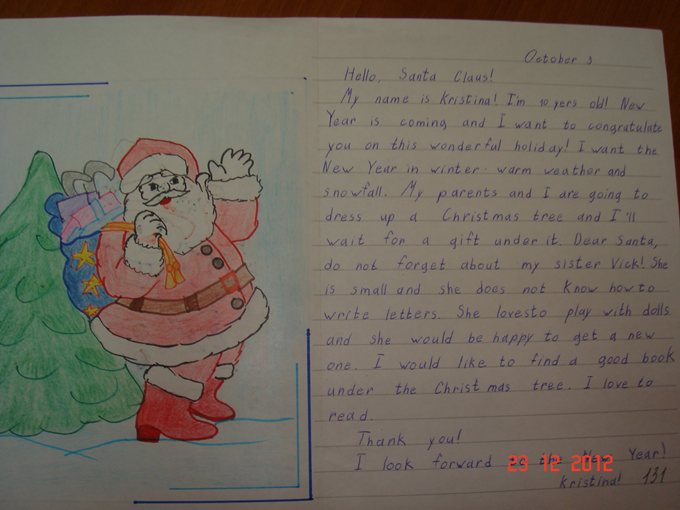 October 3
Hello, Santa Claus!
My name is Kristina! I'm 10 yers old! New
Year is coming and I want to congratulate
you on this wonderful holiday! I want the
New Year in winter warm weather and
snowfall. My parents and I are going to
dress up a Christmas tree and I'll
wait for a gift under it. Dear Santa,
do not forget about my sister Vick! She
is small and she does not know how to
write letters. She loves to play with dolls
and she would be happy to get a new
one. I would like to find a good book
under the Christmas tree. I love to
read.
Thank you!
I look forward to the New Year!
23 12 2012
Kristina! 131